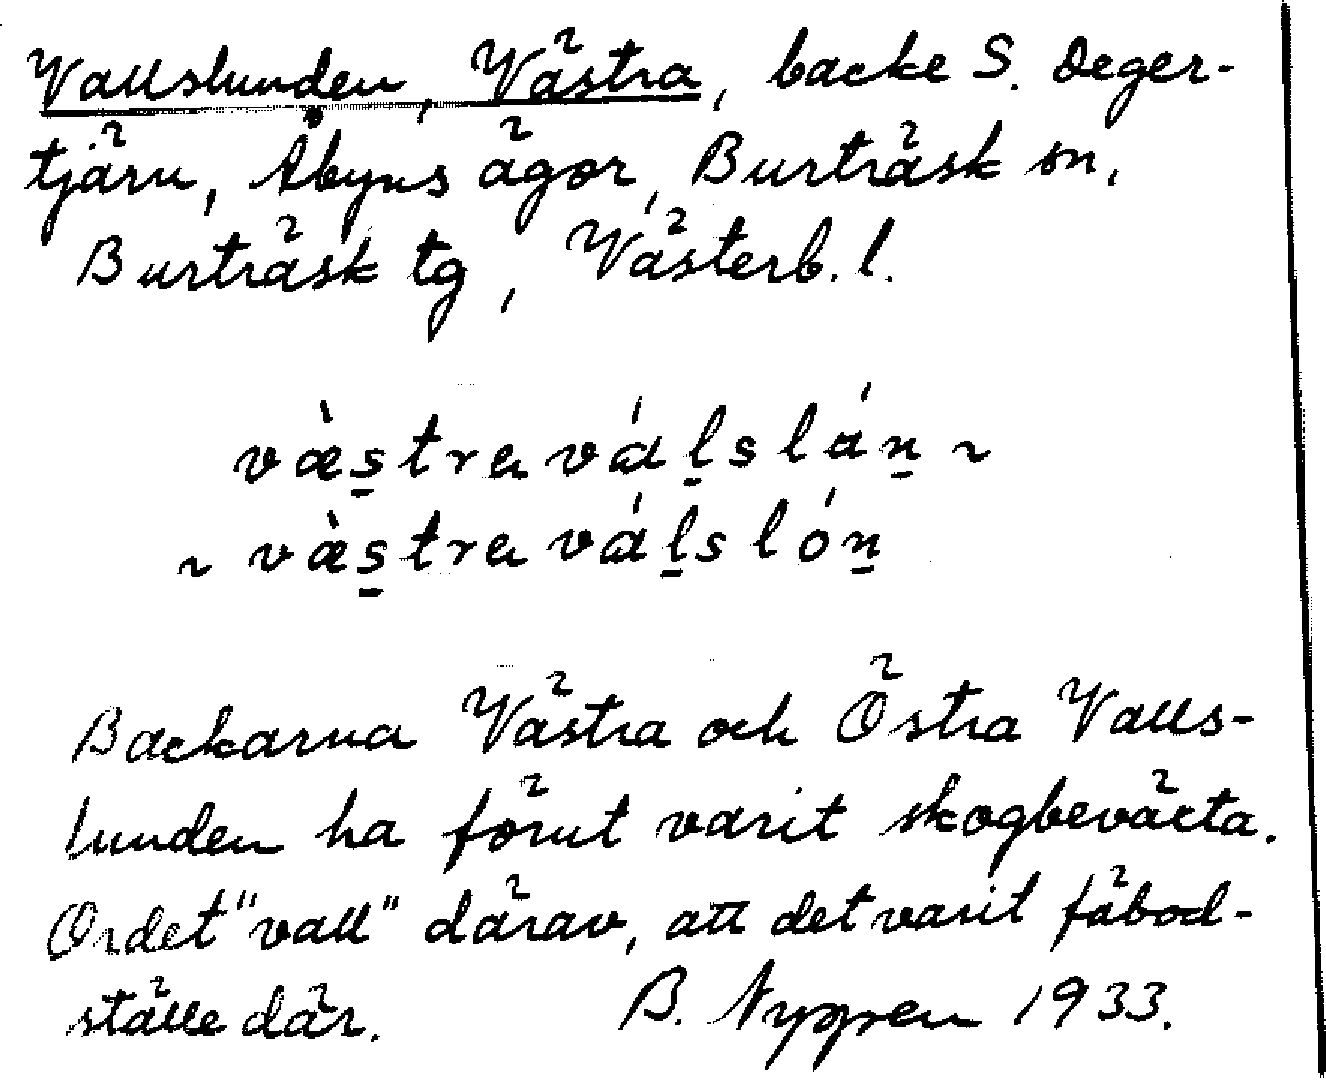 Vallslunden, Västra, backe S. Deger-
tjärn, Åbyns ägor, Burträsk sn,
Burträsk tg, Västerb. l.
væ̀s̱tra váḻsláṉ ~
~ væ̀s̱tra váḻslóṉ
Backarna Västra och Östra Valls-
lunden ha förut varit skogbeväxta.
Ordet "vall" därav, att det varit fäbod-
ställe där. B. Nygren 1933.